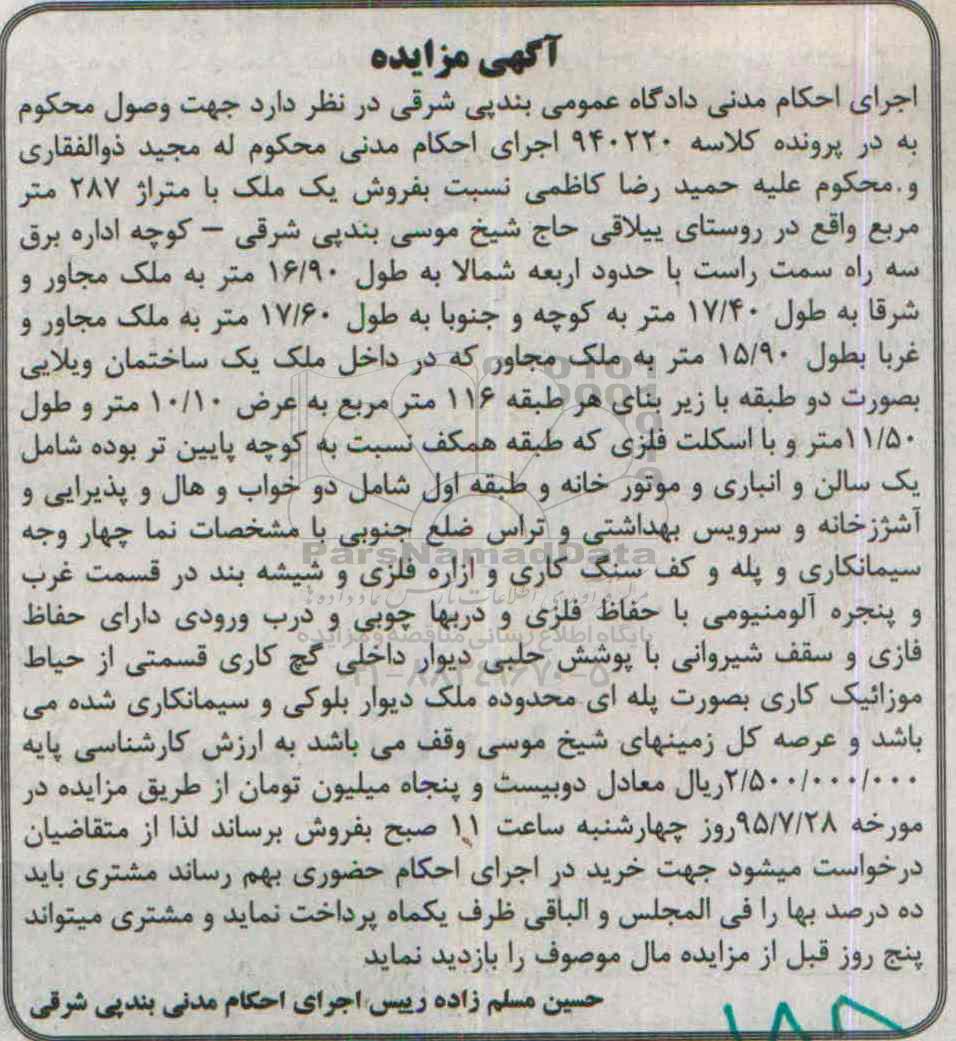 آگهی مزایده
اجرای احکام مدنی دادگاه عمومی بندپی شرقی در نظر دارد جهت وصول محکوم
به در پرونده کلاسه ۹۴۰۲۲۰ اجرای احکام مدنی محکوم له مجید ذوالفقاری
و.محکوم علیه حمید رضا کاظمی نسبت بفروش یک ملک با متراژ ۲۸۷ متر
مربع واقع در روستای ییلاقی حاج شیخ موسی بندپی شرقی – کوچه اداره برق
سه راه سمت راست با حدود اربعه شمالا به طول ۱۶/۹۰ متر به ملک مجاور و
شرقا به طول ۱۷/۴۰ متر به کوچه و جنوبا به طول ۱۷/۶۰ متر به ملک مجاور و
غربا بطول ۱۵/۹۰ متر به ملک مجاور که در داخل ملک یک ساختمان ویلایی
بصورت دو طبقه با زیر بنای هر طبقه ۱۱۶ متر مربع به عرض ۱۰/۱۰ متر و طول
۱۱/۵۰متر و با اسکلت فلزی که طبقه همکف نسبت به کوچه پایین تر بوده شامل
یک سالن و انباری و موتور خانه و طبقه اول شامل دو خواب و هال و پذیرایی و
آشژزخانه و سرویس بهداشتی و تراس ضلع جنوبی با مشخصات نما چهار وجه
سیمانکاری و پله و کف سنگ کاری و ازاره فلزی و شیشه بند در قسمت غرب
و پنجره آلومنیومی با حفاظ فلزی و دربها چوبی و درب ورودی دارای حفاظ
فازی و سقف شیروانی با پوشش حلبی دیوار داخلی گچ کاری قسمتی از حیاط
موزائیک کاری بصورت پله ای محدوده ملک دیوار بلوکی و سیمانکاری شده می
باشد و عرصه کل زمینهای شیخ موسی وقف می باشد به ارزش کارشناسی پایه
۲/۵۰۰/۰۰۰/۰۰۰ریال معادل دوبیست و پنجاه میلیون تومان از طریق مزایده در
مورخه ۹۵/۷/۲۸روز چهارشنبه ساعت ۱۱ صبح بفروش برساند لذا از متقاضیان
درخواست میشود جهت خرید در اجرای احکام حضوری بهم رساند مشتری باید
ده درصد بها را فی المجلس و الباقی ظرف یکماه پرداخت نماید و مشتری میتواند
پنج روز قبل از مزایده مال موصوف را بازدید نماید
حسین مسلم زاده رییس اجرای احکام مدنی بندپی شرقی
ParsNamadData
پایگاه اطلاع رسانی مناقصه و مزایده